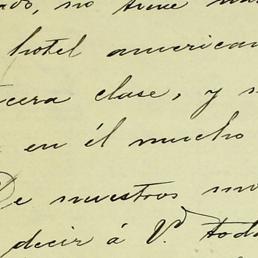 no tiene
hotel american
cera clase, y
en él mucho
De nuestros
decir á Vd. toda